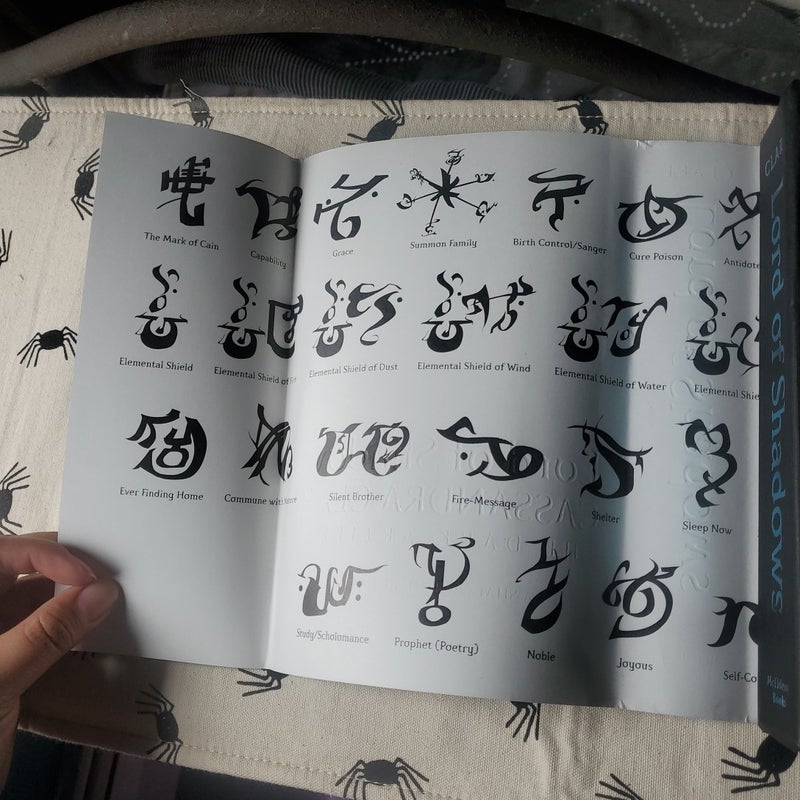 The Mark of Cain
Capability
Grace
Summon Family
Birth Control/Sanger
Cure Poison
Antidote
Elemental Shield
Elemental Shield of
Elemental Shield of Dust
Elemental Shield of Wind
Elemental Shield of Water
Elemental Shie
Ever Finding Home
Commune with Nature
Silent Brother
Fire-Message
Shelter
Sleep Now
Study/Scholomance
Prophet (Poetry)
Noble
Joyous
Self-Co
CLAR
Lord of Shadows